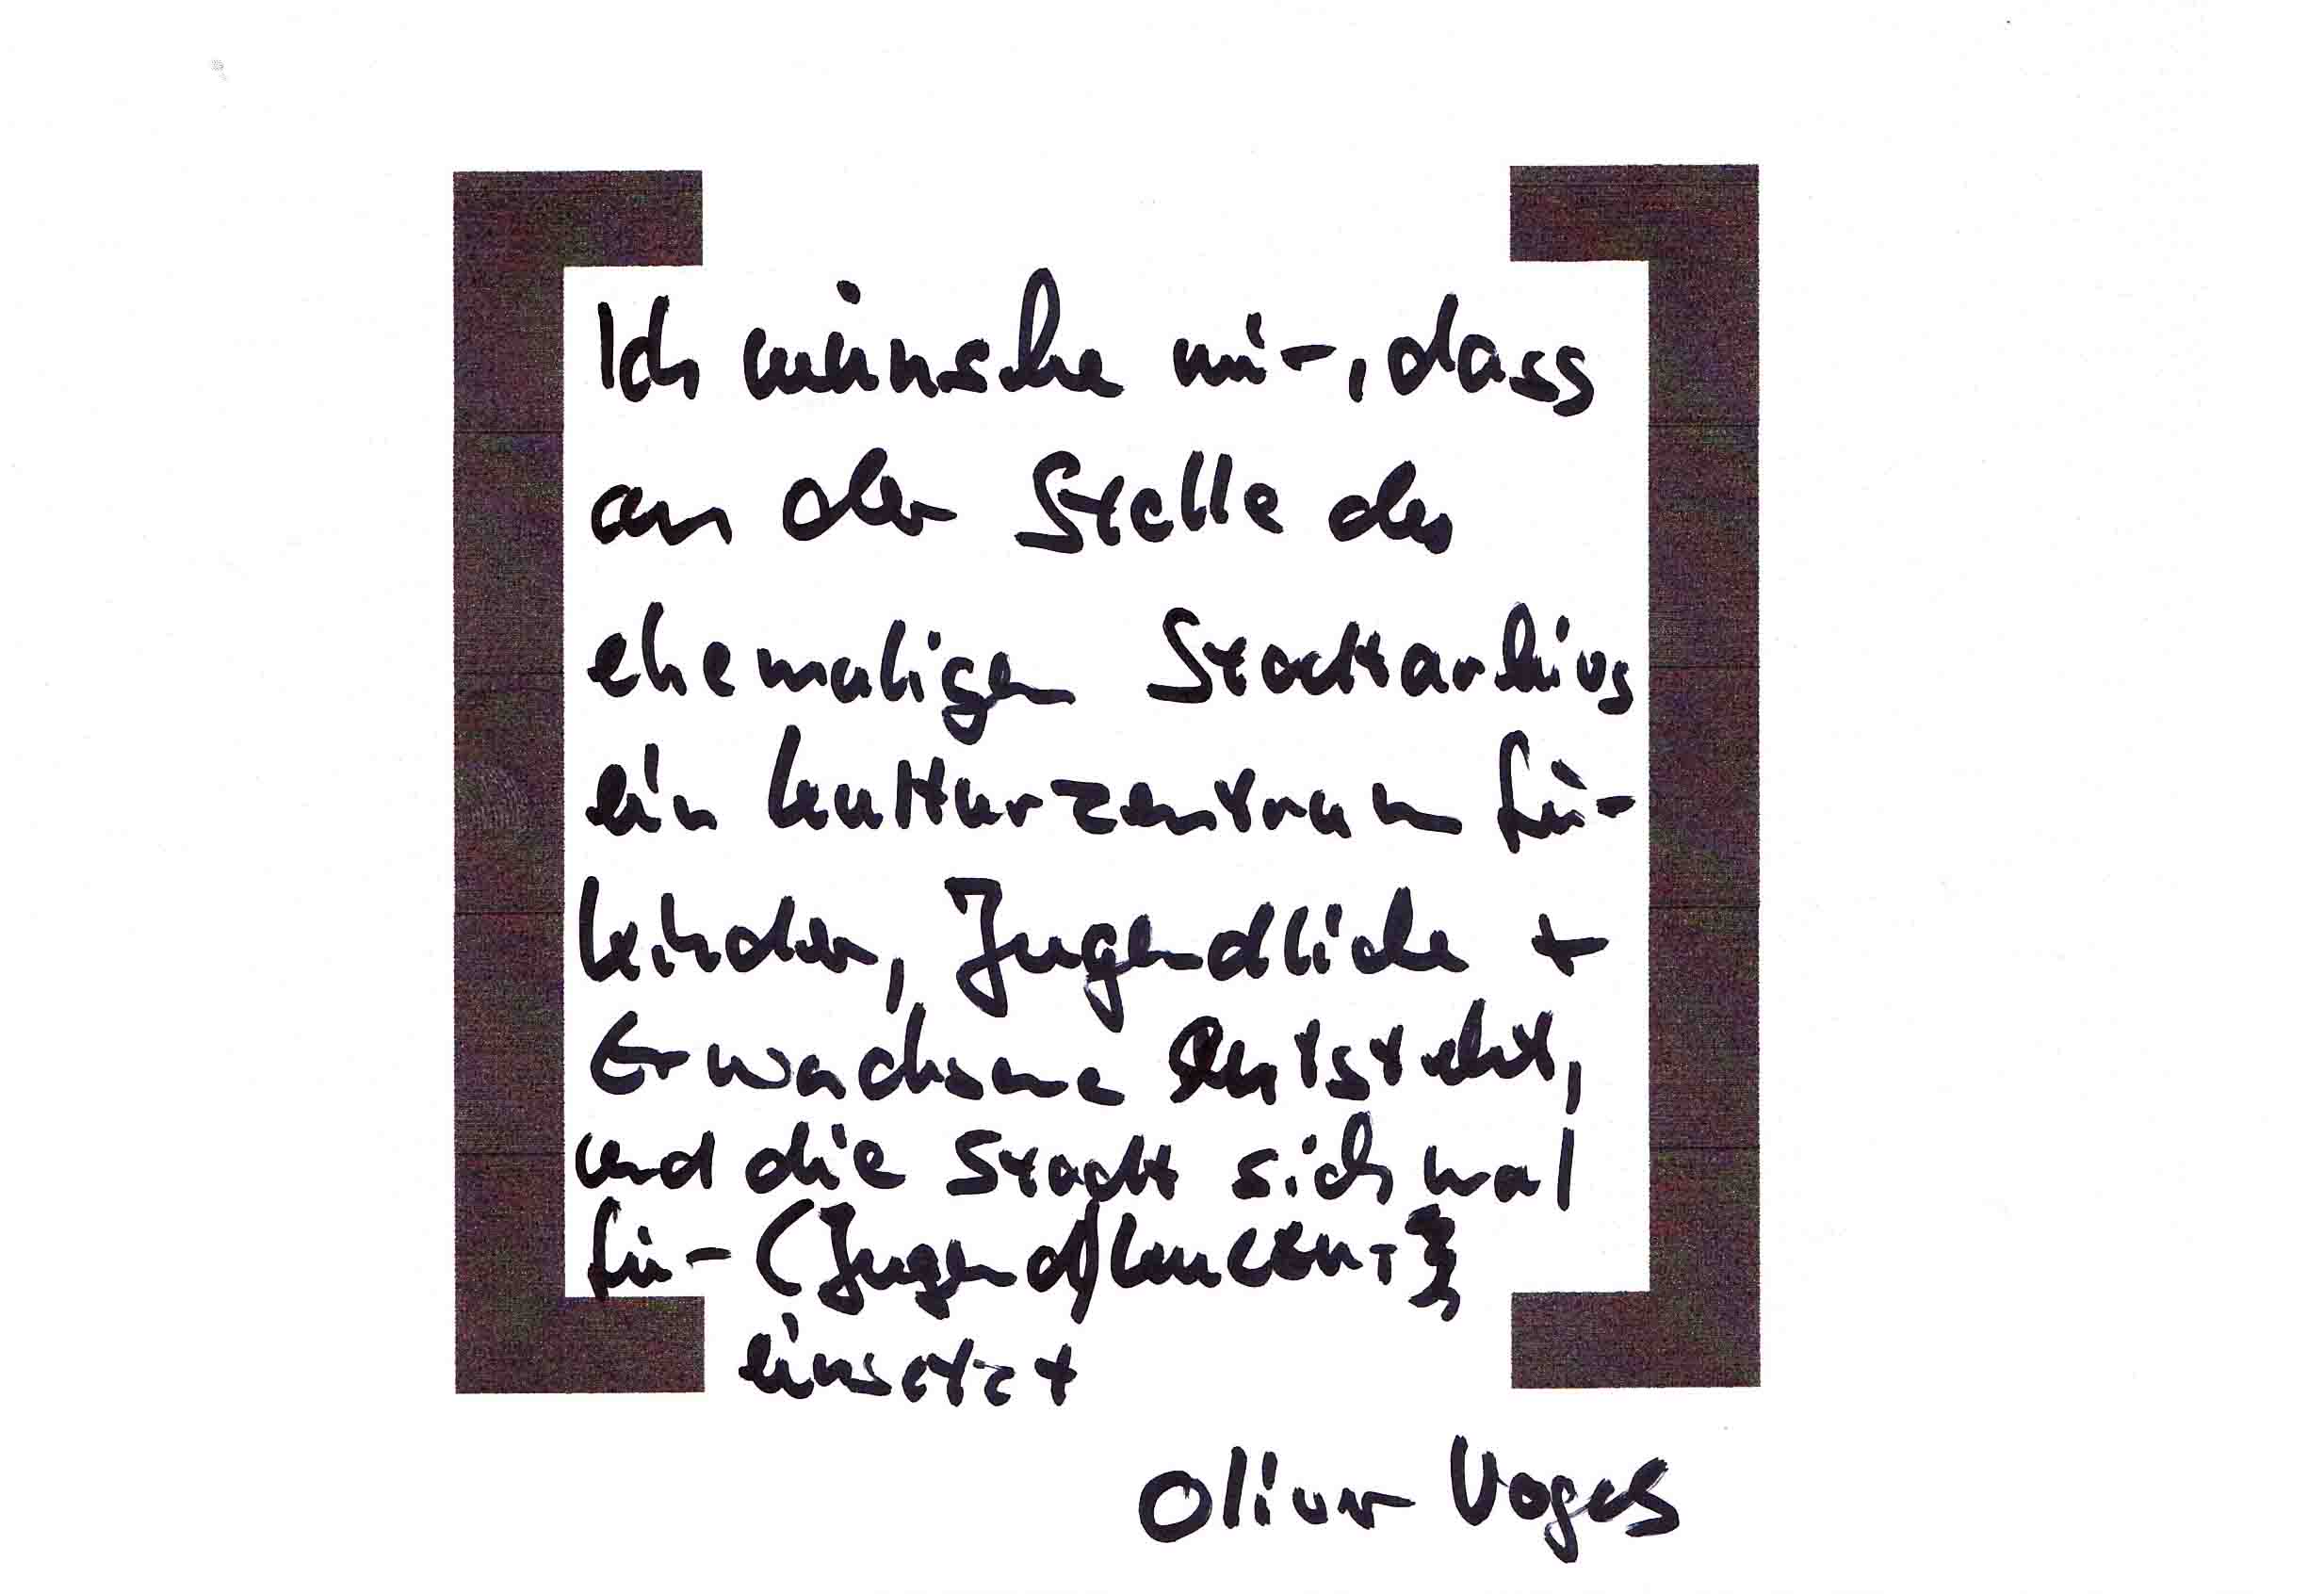 Ich wünsche mir, dass
an der Stelle des
ehemaligen Stadtarchivs
ein Kulturzentrum für
Kinder, Jugendliche +
Erwachsene entsteht,
und die Stadt sich mal
für (Jugend)
einsetzt
Oliver Voges